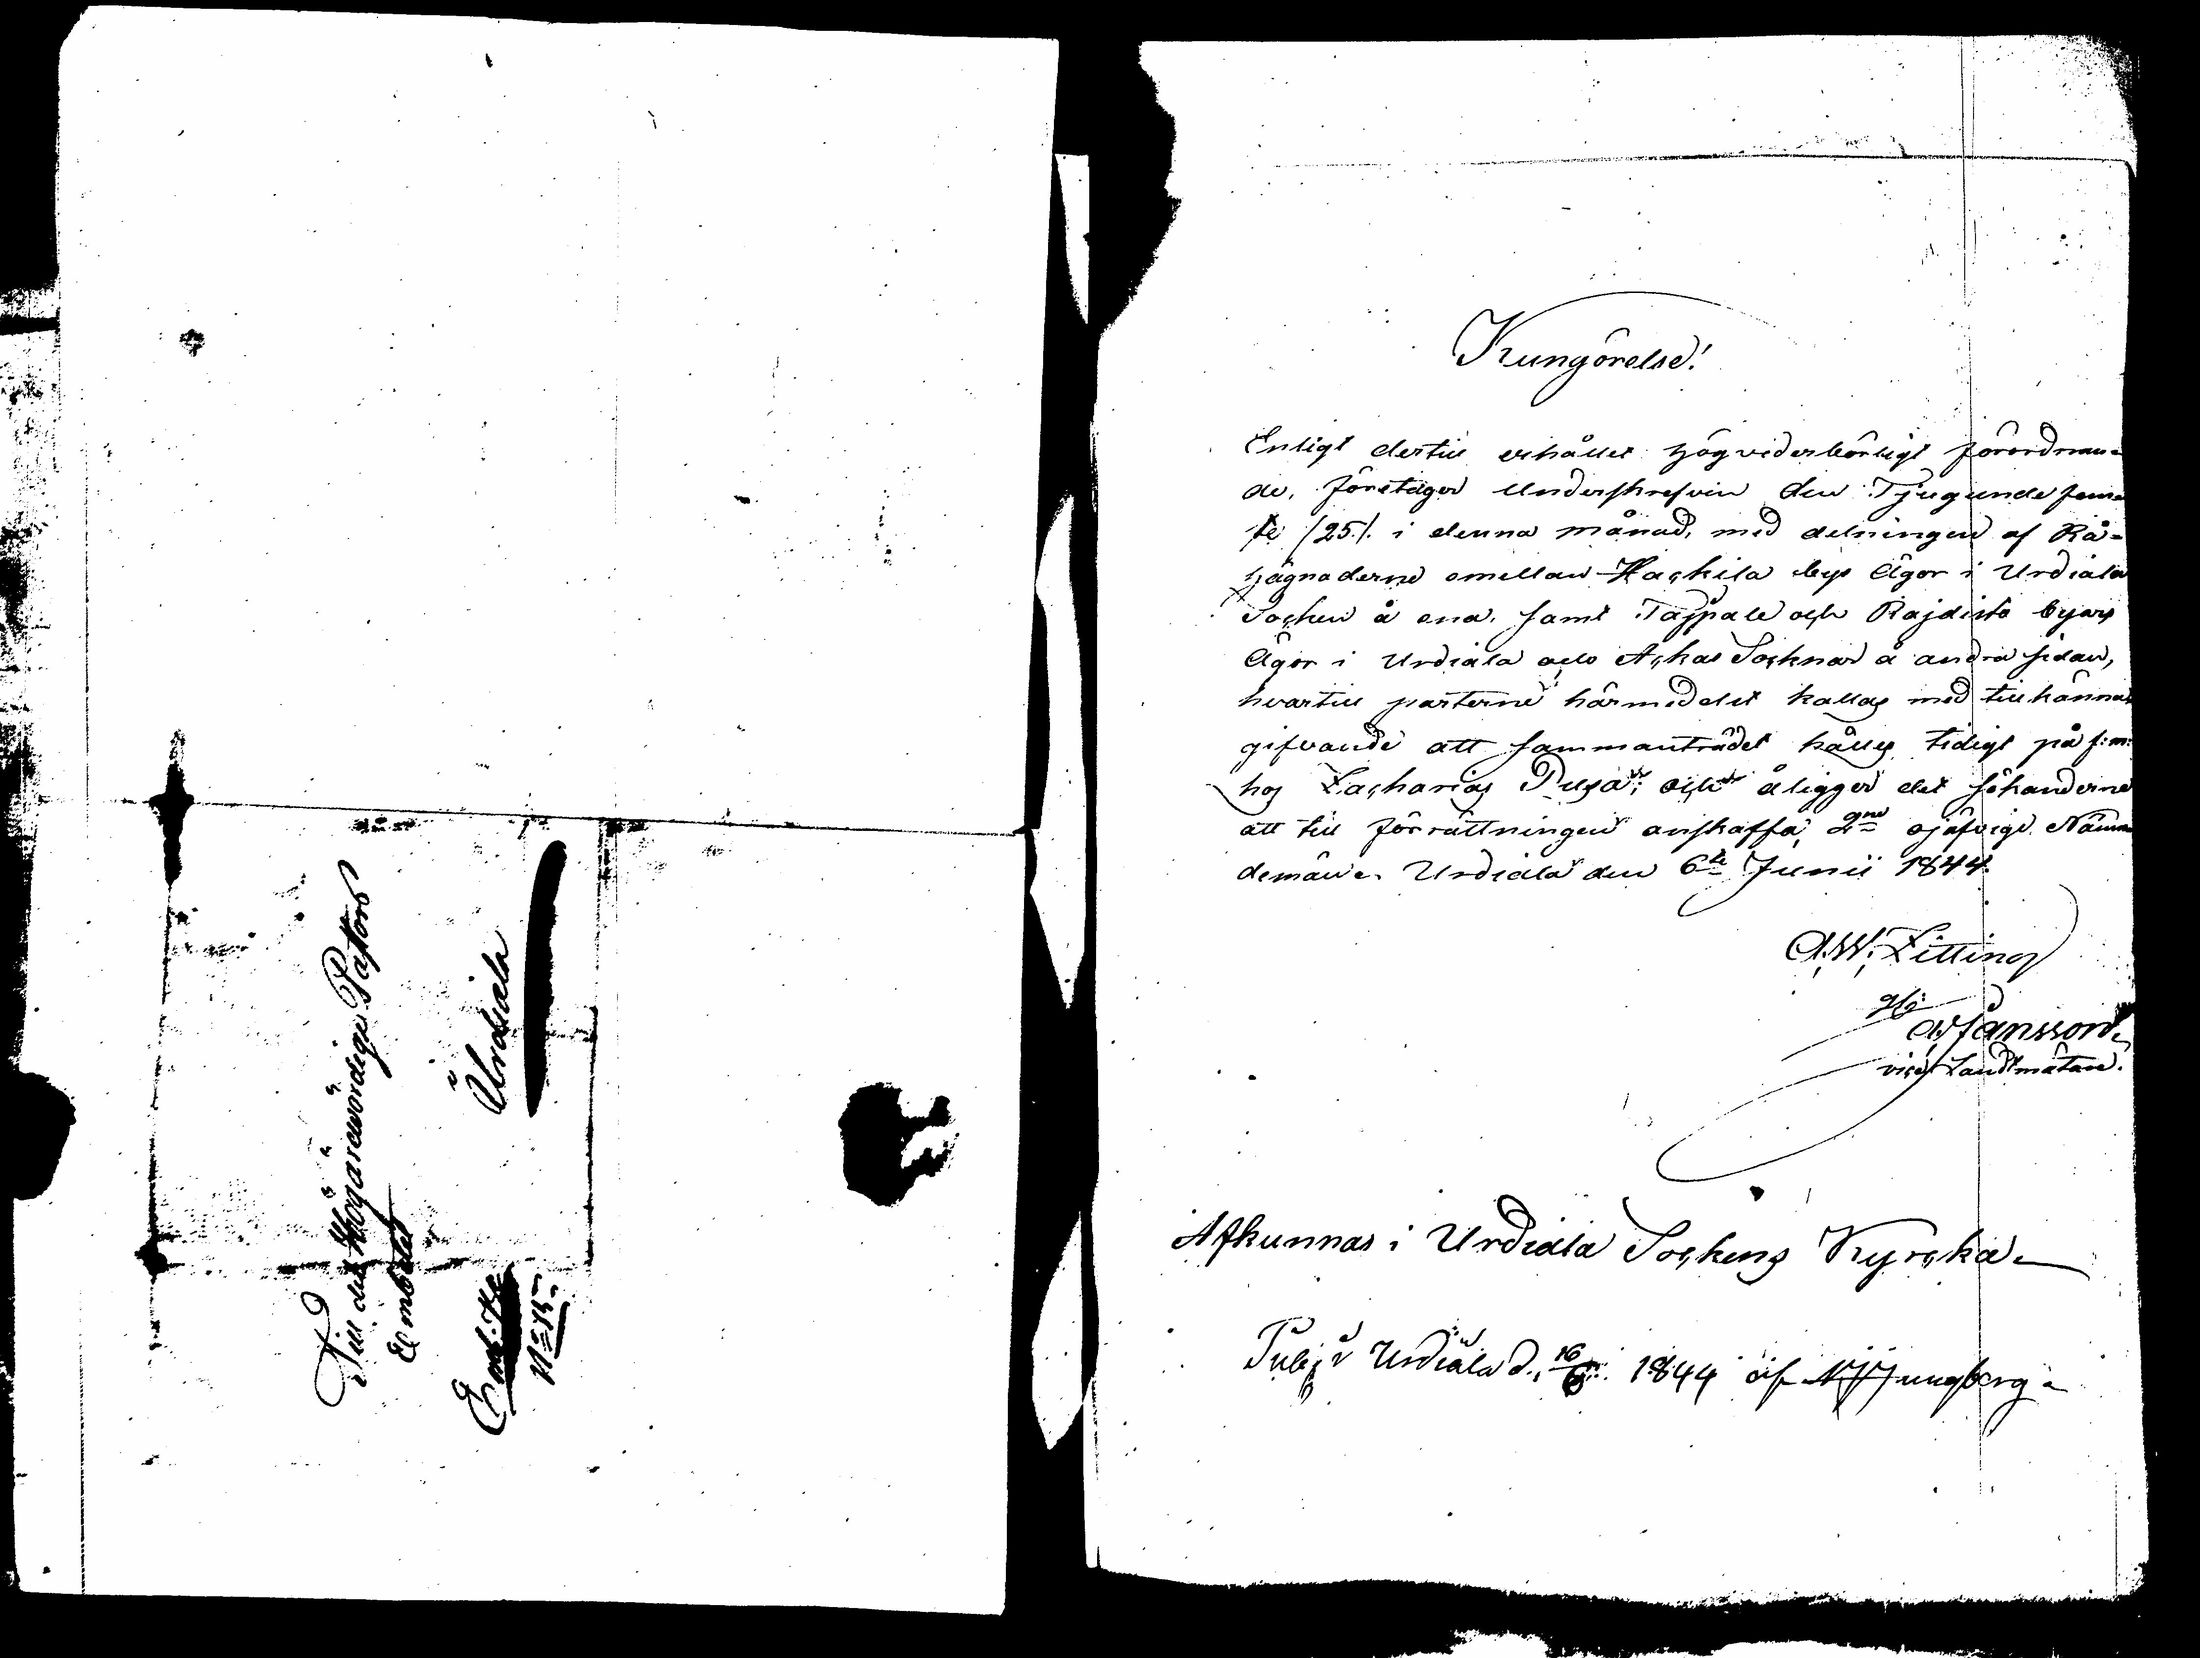 Till det Högärewördige Pastors
Embetet
i
Urdiala
Embt:
Kungörelse!
Enligt dertill erhållet högvederbörligt förordnan-
de, företager Underskrefven den Tjugunde fem-
te /25./ i denna månad, med delningen af Rå-
hägnaderne emellan Haskila bys Ägor i Urdiala
Socken å ena, samt Tappale och Rajdisto byars
Ägor i Urdiala och Ackas Socknar å andra sidan,
hvartill parterne härmedelst kallas med tillkänna
gifvande att sammanträdet hålles tidigt på f:m:
hos Zacharias Pusa, och åligger det sökanderne
att till förrättningen anskaffa, 2ne ojäfvige Näm-
demän. Urdiala den 6te Junii 1844.
A.W. Zitting
g/g
Jansson.
vice Landtmätare.
Afkunnas i Urdiala Sockens Kyrcka.
Publ: i Urdiala d. 16/6 1844 af Ljungberg